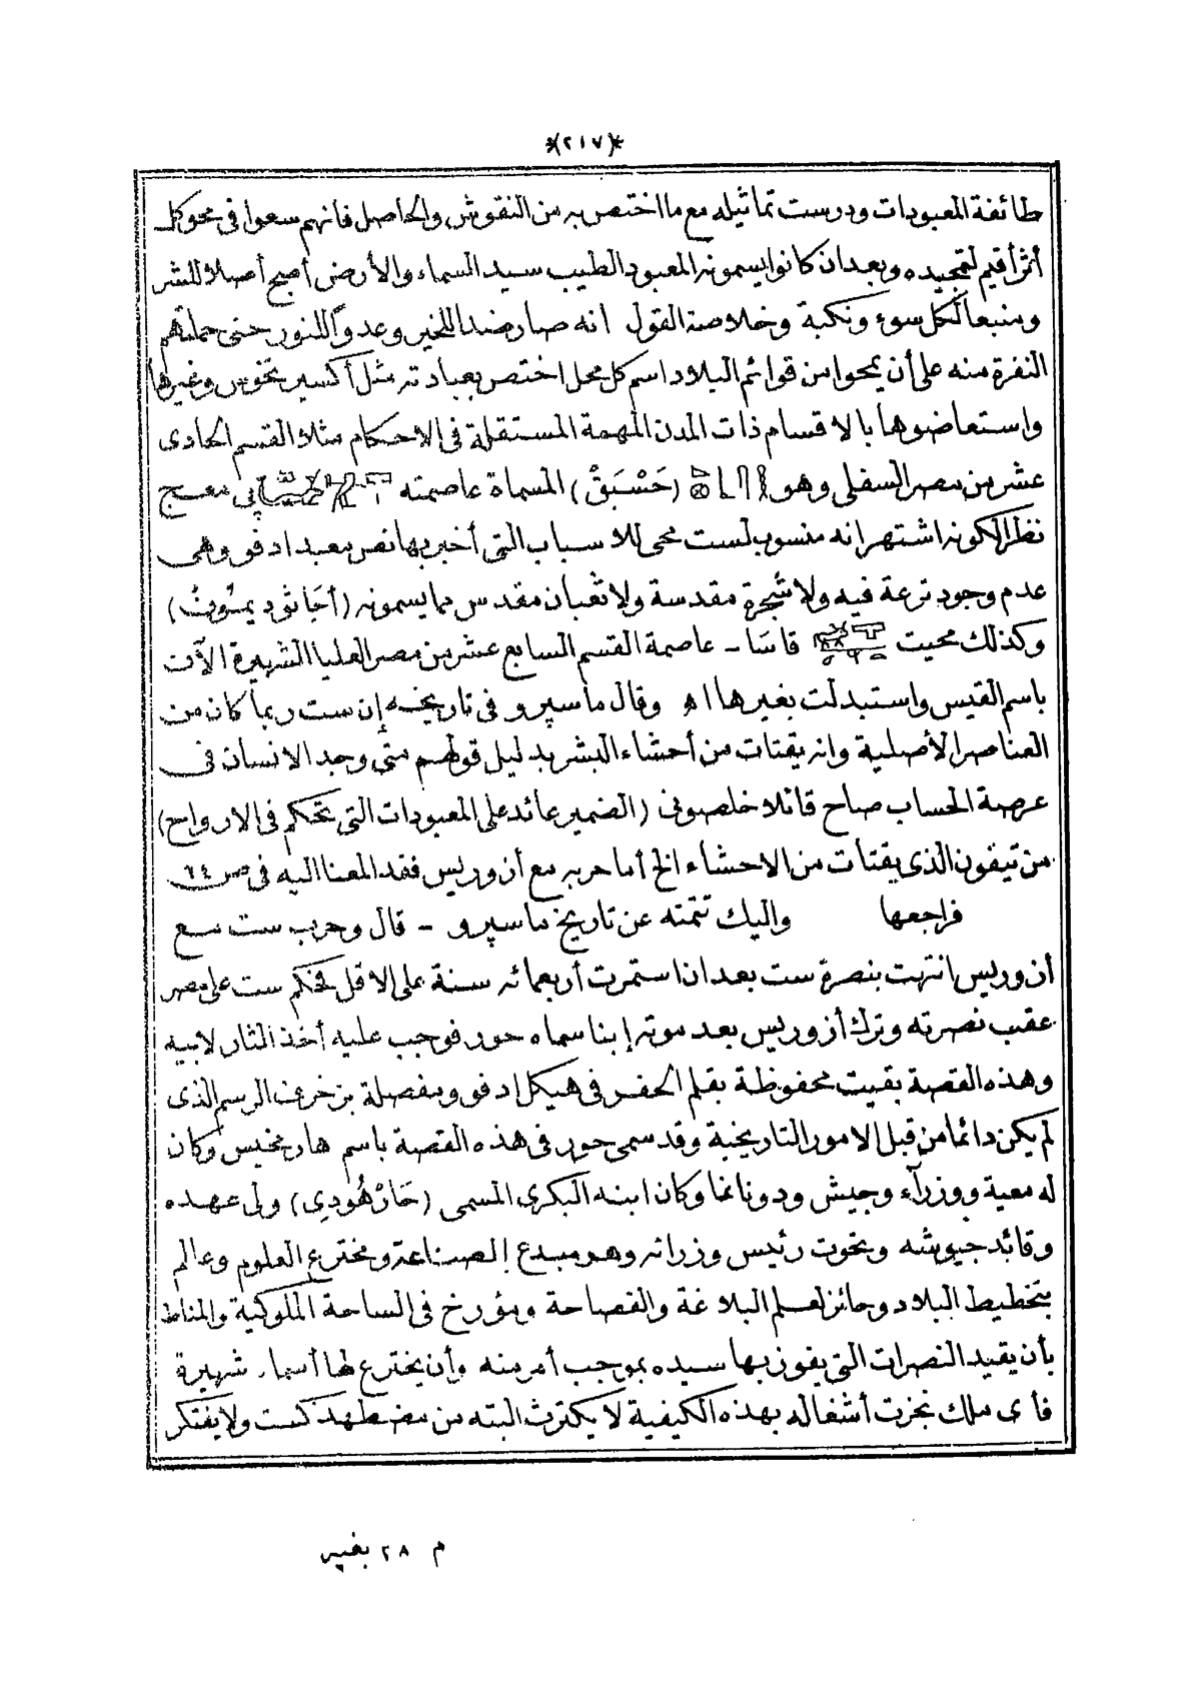 *(٢١٧)*
طائفة المعبودات ودرست تماثيله مع ما اختص به من النقوش والحاصل فانهم سعوا فى محو كل
أثر أقيم لتمجيده وبعد ان كانوا يسمونه المعبود الطيب سيد السماء والأرض أصبح أصلا للشر
ومنبعا لكل سوء ونكبة وخلاصة القول انه صار ضدا للخير وعدوّا للنور حتى حملتهم
النفرة منه على أن يمحوا من قوائم البلاد اسم كل محل اختص بعبادته مثل أكسيرنخوس وغيرها
واستعاضوها بالاقسام ذات المدن المهمة المستقلة فى الاحكام مثلا القسم الحادى
عشر من مصر السفلى وهو (حَسْبَقْ) المسماة عاصمته پى معج
نظرا لكونه اشتهر انه منسوب لست محى للاسباب التى أخبر بها نص بمعبد ادفو وهى
عدم وجود ترعة فيه ولا شجرة مقدسة ولا ثعبان مقدس مما يسمونه (أجَاثود يمُونْ)
وكذلك محيت قاسَا - عاصمة القسم السابع عشر من مصر العليا الشهيرة الآن
باسم القيس واستبدلت بغيرها اه وقال ماسپرو فى تاريخه إن ست ربما كان من
العناصر الأصلية وانه يقتات من أحشاء البشر بدليل قولهم متى وجد الانسان فى
عرصة الحساب صاح قائلا خلصونى (الضمير عائد على المعبودات التى تحكم فى الارواح)
من تيفون الذى يقتات من الاحشاء الخ أما حربه مع أزوريس فقد المعنا اليه فى ص ٦٤
فراجعها واليك تتمته عن تاريخ ماسپرو - قال وحرب ست مع
أزوريس انتهت بنصرة ست بعد ان استمرت أربعمائه سنة على الاقل فحكم ست على مصر
عقب نصرته وترك أزوريس بعد موته إبنا سماه حور فوجب عليه أخذ الثار لابيه
وهذه القصة بقيت محفوظة بقلم الحفر فى هيكل ادفو ومفصلة بزخرف الرسم الذى
لم يكن دائما من قبل الامور التاريخية وقد سمى حور فى هذه القصة باسم هارمخيس وكان
له معية ووزرآء وجيش ودونانما وكان ابنه البكرى المسمى (حَارْهُودِى) ولى عهده
وقائد جيوشه وتحوت رئيس وزرائه وهو مبدع الصناعة ومخترع العلوم وعالم
بتخطيط البلاد وحائز لعلم البلاغة والفصاحة ومؤرخ فى الساحة الملوكية والمناط
بأن يقيد النصرات التى يفوز بها سيده بموجب أمر منه وأن يخترع لها أسماء شهيرة
فأى ملك نجزت أشغاله بهذه الكيفية لا يكترث البته من مضطهد كست ولا يفتكر
م ٢٨ بغيه